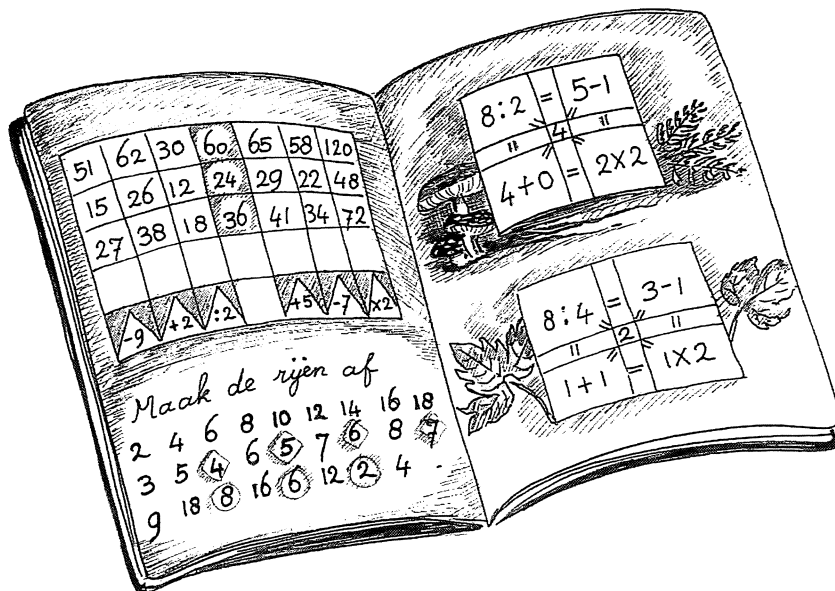 51 62 30 60 65 58 120
15 26 12 24 29 22 48
27 38 18 36 41 34 72
-9 +2 :2 +5 -7 x2
Maak de rijen af
2 4 6 8 10 12 14 16 18
3 5 4 6 5 7 6 8 7
9 18 8 16 6 12 2 4
8:2 = 5-1
= 4 =
4+0 = 2x2
8:4 = 3-1
= 2 =
1+1 = 1x2